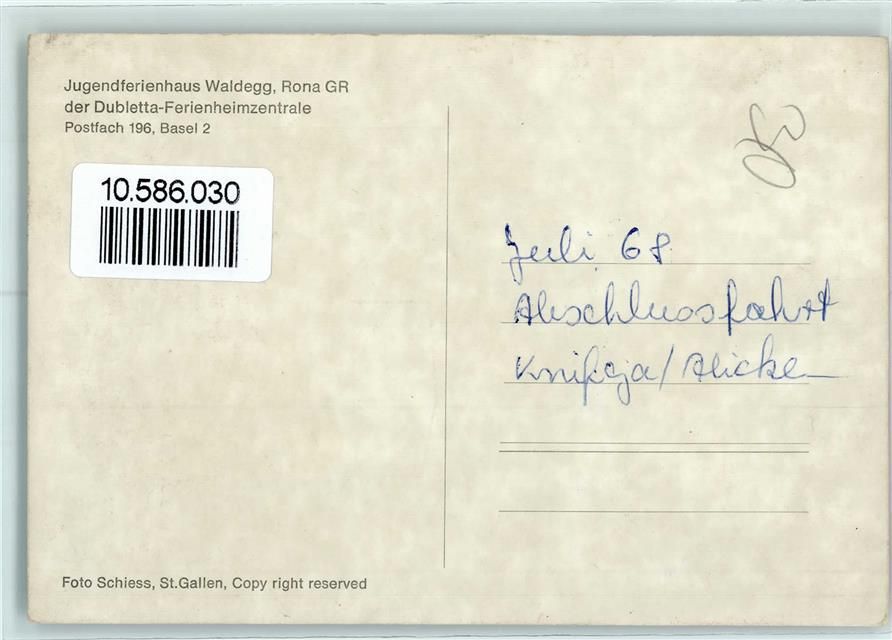 Jugendferienhaus Waldegg, Rona GR
der Dubletta-Ferienheimzentrale
Postfach 196, Basel 2
10.586.030
Juli 68
Abschlussfahrt
Foto Schiess, St.Gallen, Copy right reserved